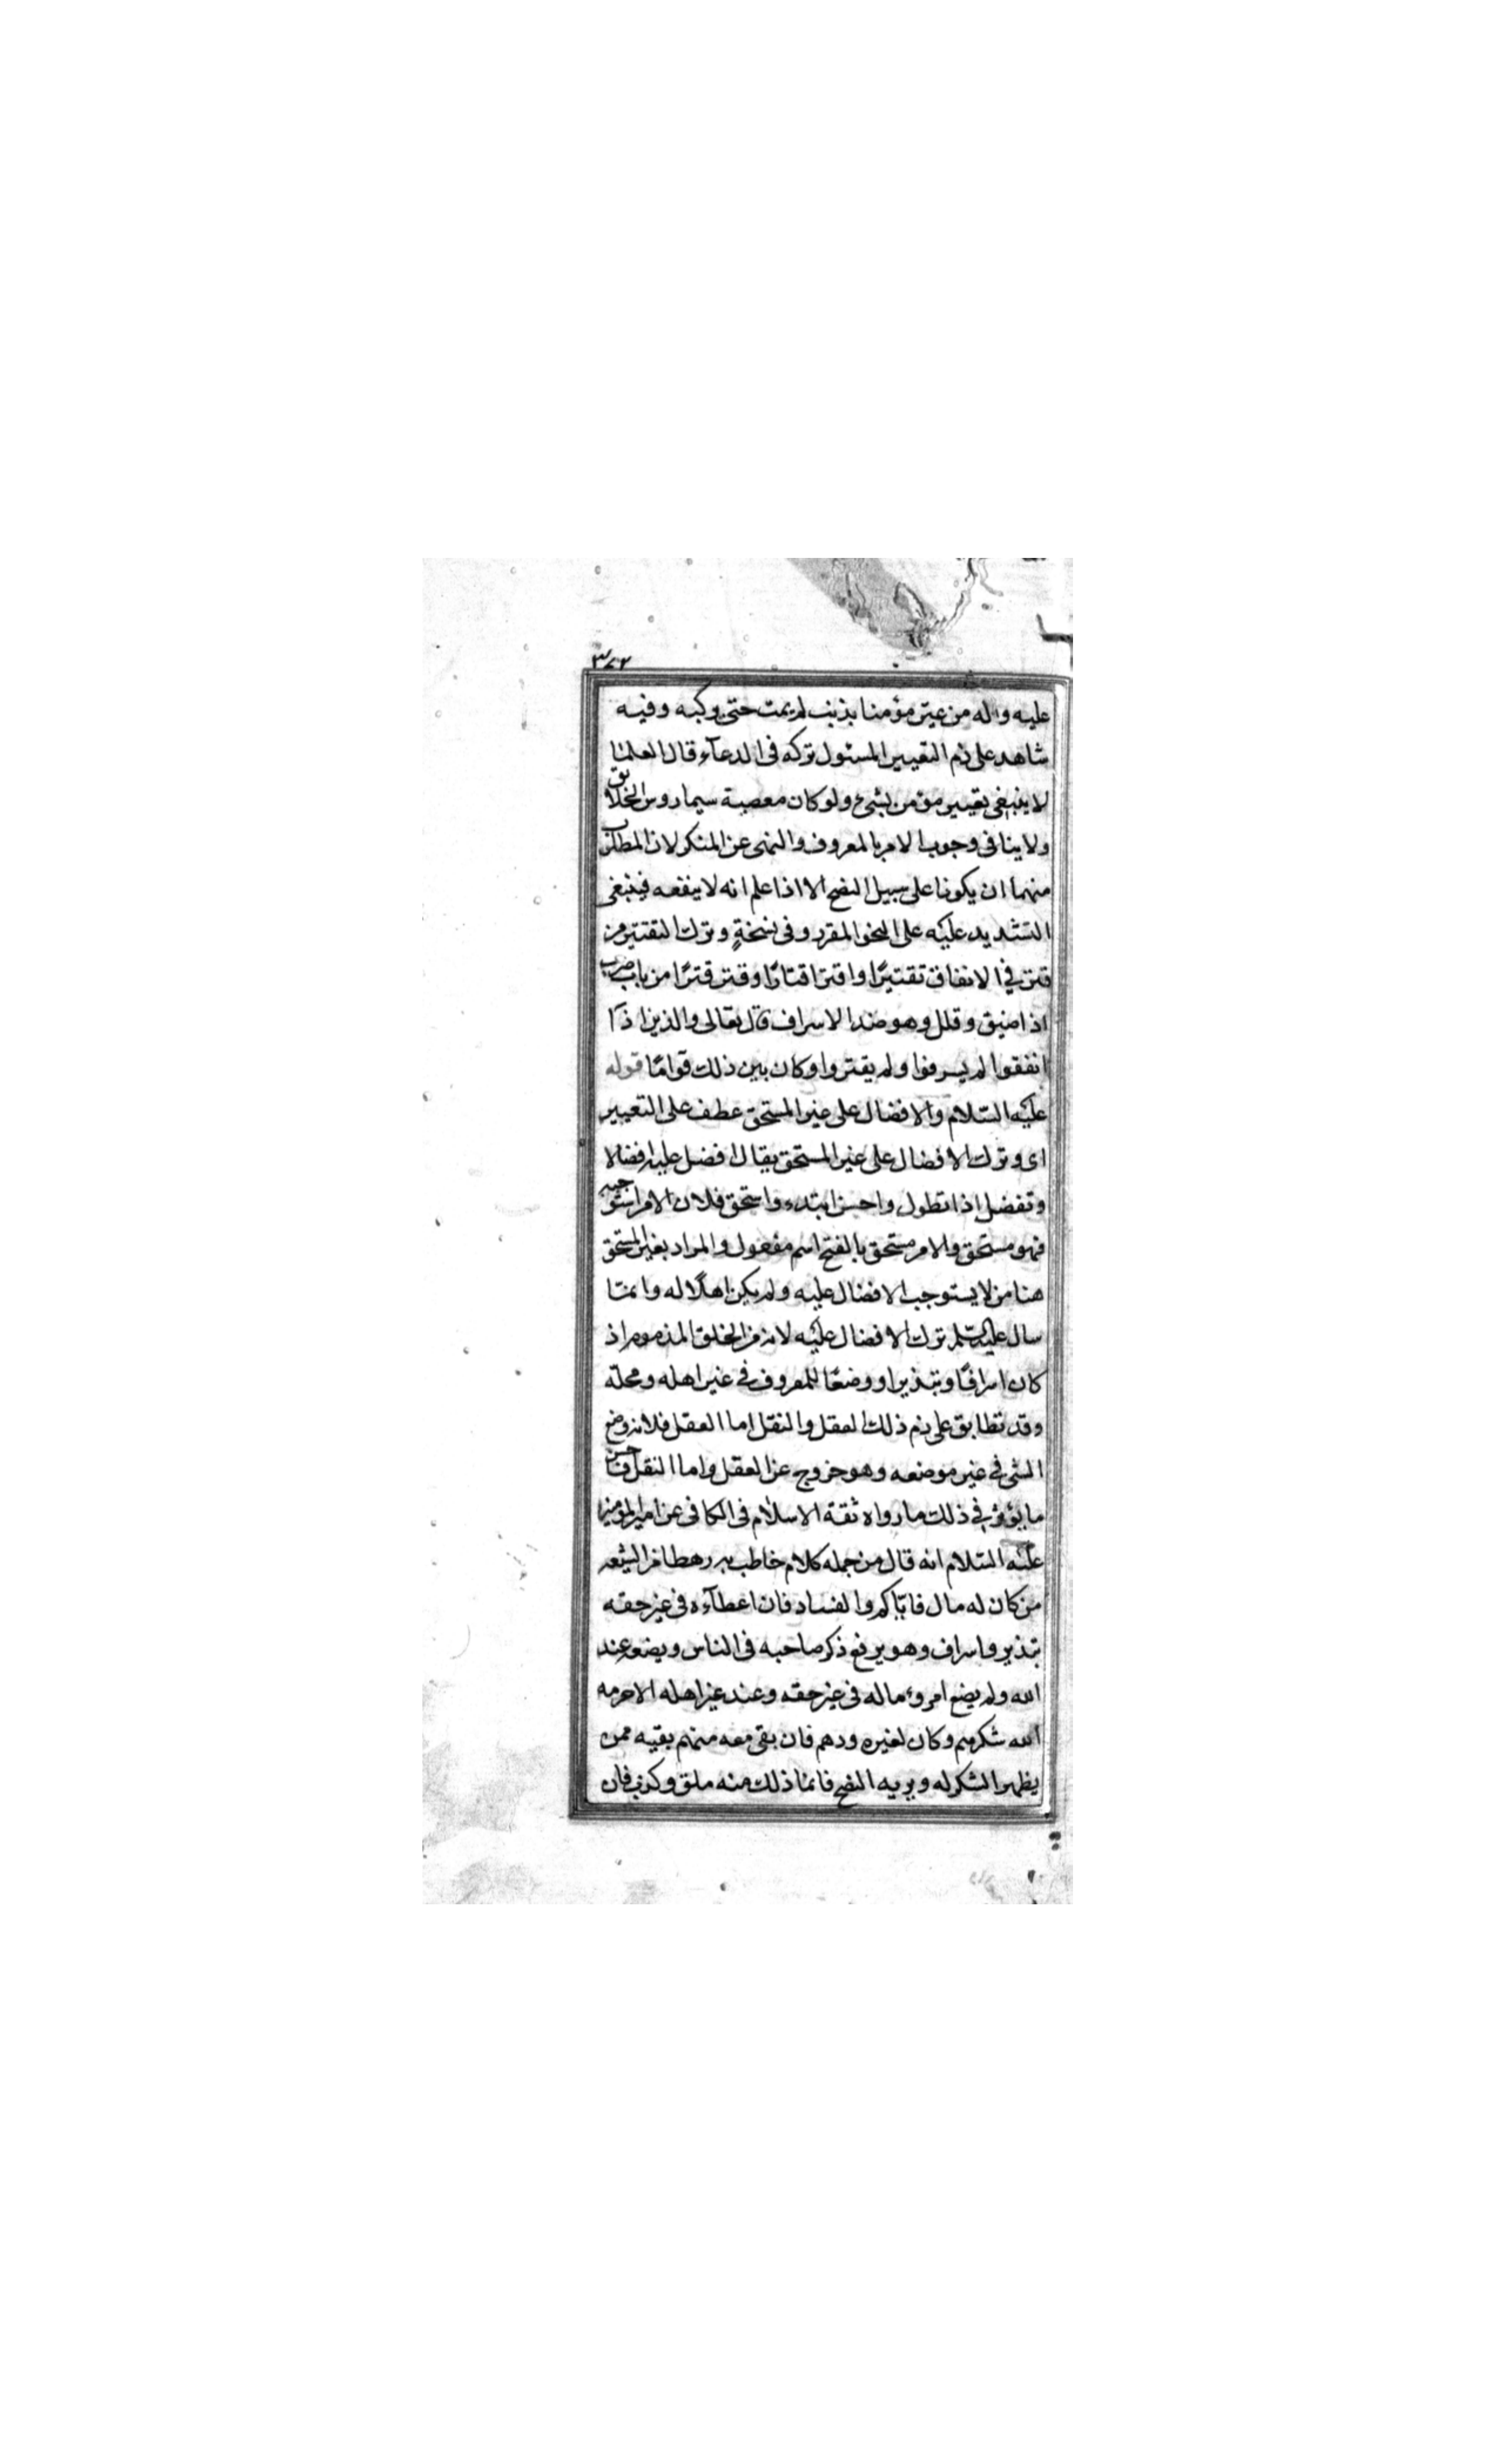 ٣٤٢
عليه واله من عيّر مؤمنا بذنب لم يمت حتى يركبه وفيه
شاهد على ذم التعيير المسئول تركه فى الدعآء قال العلما
لا ينبغى تعيير مؤمن بشىء ولو كان معصية سيما روس الخلايق
ولا ينافى وجوب الامر بالمعروف والنهى عن المنكر لان المطلوب
منهما ان يكونا على سبيل النصح الا اذا علم انه لا ينفعه فينبغى
التشديد عليه على النحو المقرر وفى نسخةٍ وترك التقتير من
قتر في الانفاق تقتيرًا واقتر اقتارًا وقتر قترًا من باب ضرب
اذا ضيق وقلل وهو ضد الاسراف قال تعالى والذين اذا
انفقوا لم يسرفوا ولم يقتروا وكان بين ذلك قوامًا قوله
عليه السّلام والافضال على غير المستحق عطف على التعيير
اى وترك الافضال على غير المستحق يقال افضل عليه افضالا
وتفضل اذا تطول واحسن ابتدء واستحق فلان الامر استوجبه
فهو مستحق والامر مستحق بالفتح اسم مفعول والمراد بغير المستحق
هنا من لا يستوجب الافضال عليه ولم يكن اهلًا له وانمّا
سال عليه السّلم ترك الافضال عليه لانه من الخلق المذموم اذ
كان اسرافًا وتبذيرا ووضعًا للمعروف في غير اهله ومحلّه
وقد تطابق على ذم ذلك العقل والنقل اما العقل فلانه وضع
الشى في غير موضعه وهو خروج عن العقل واما النقل فاحسن
ما يؤثر في ذلك ما رواه ثقة الاسلام فى الكافى عن امير المؤمنين
عليه السّلام انه قال من جمله كلام خاطب به رهطا من الشيعه
من كان له مال فايّاكم والفساد فان اعطآءه فى غير حقه
تبذير واسراف وهو يرفع ذكر صاحبه فى الناس ويضعه عند
الله ولم يضع امروء ماله فى غير حقه وعند غير اهله الا حرمه
الله شكرهم وكان لغيره ودهم فان بقى معه منهم بقيه ممن
يظهر الشكر له ويريه النصح فانما ذلك منه ملق وكذب فان